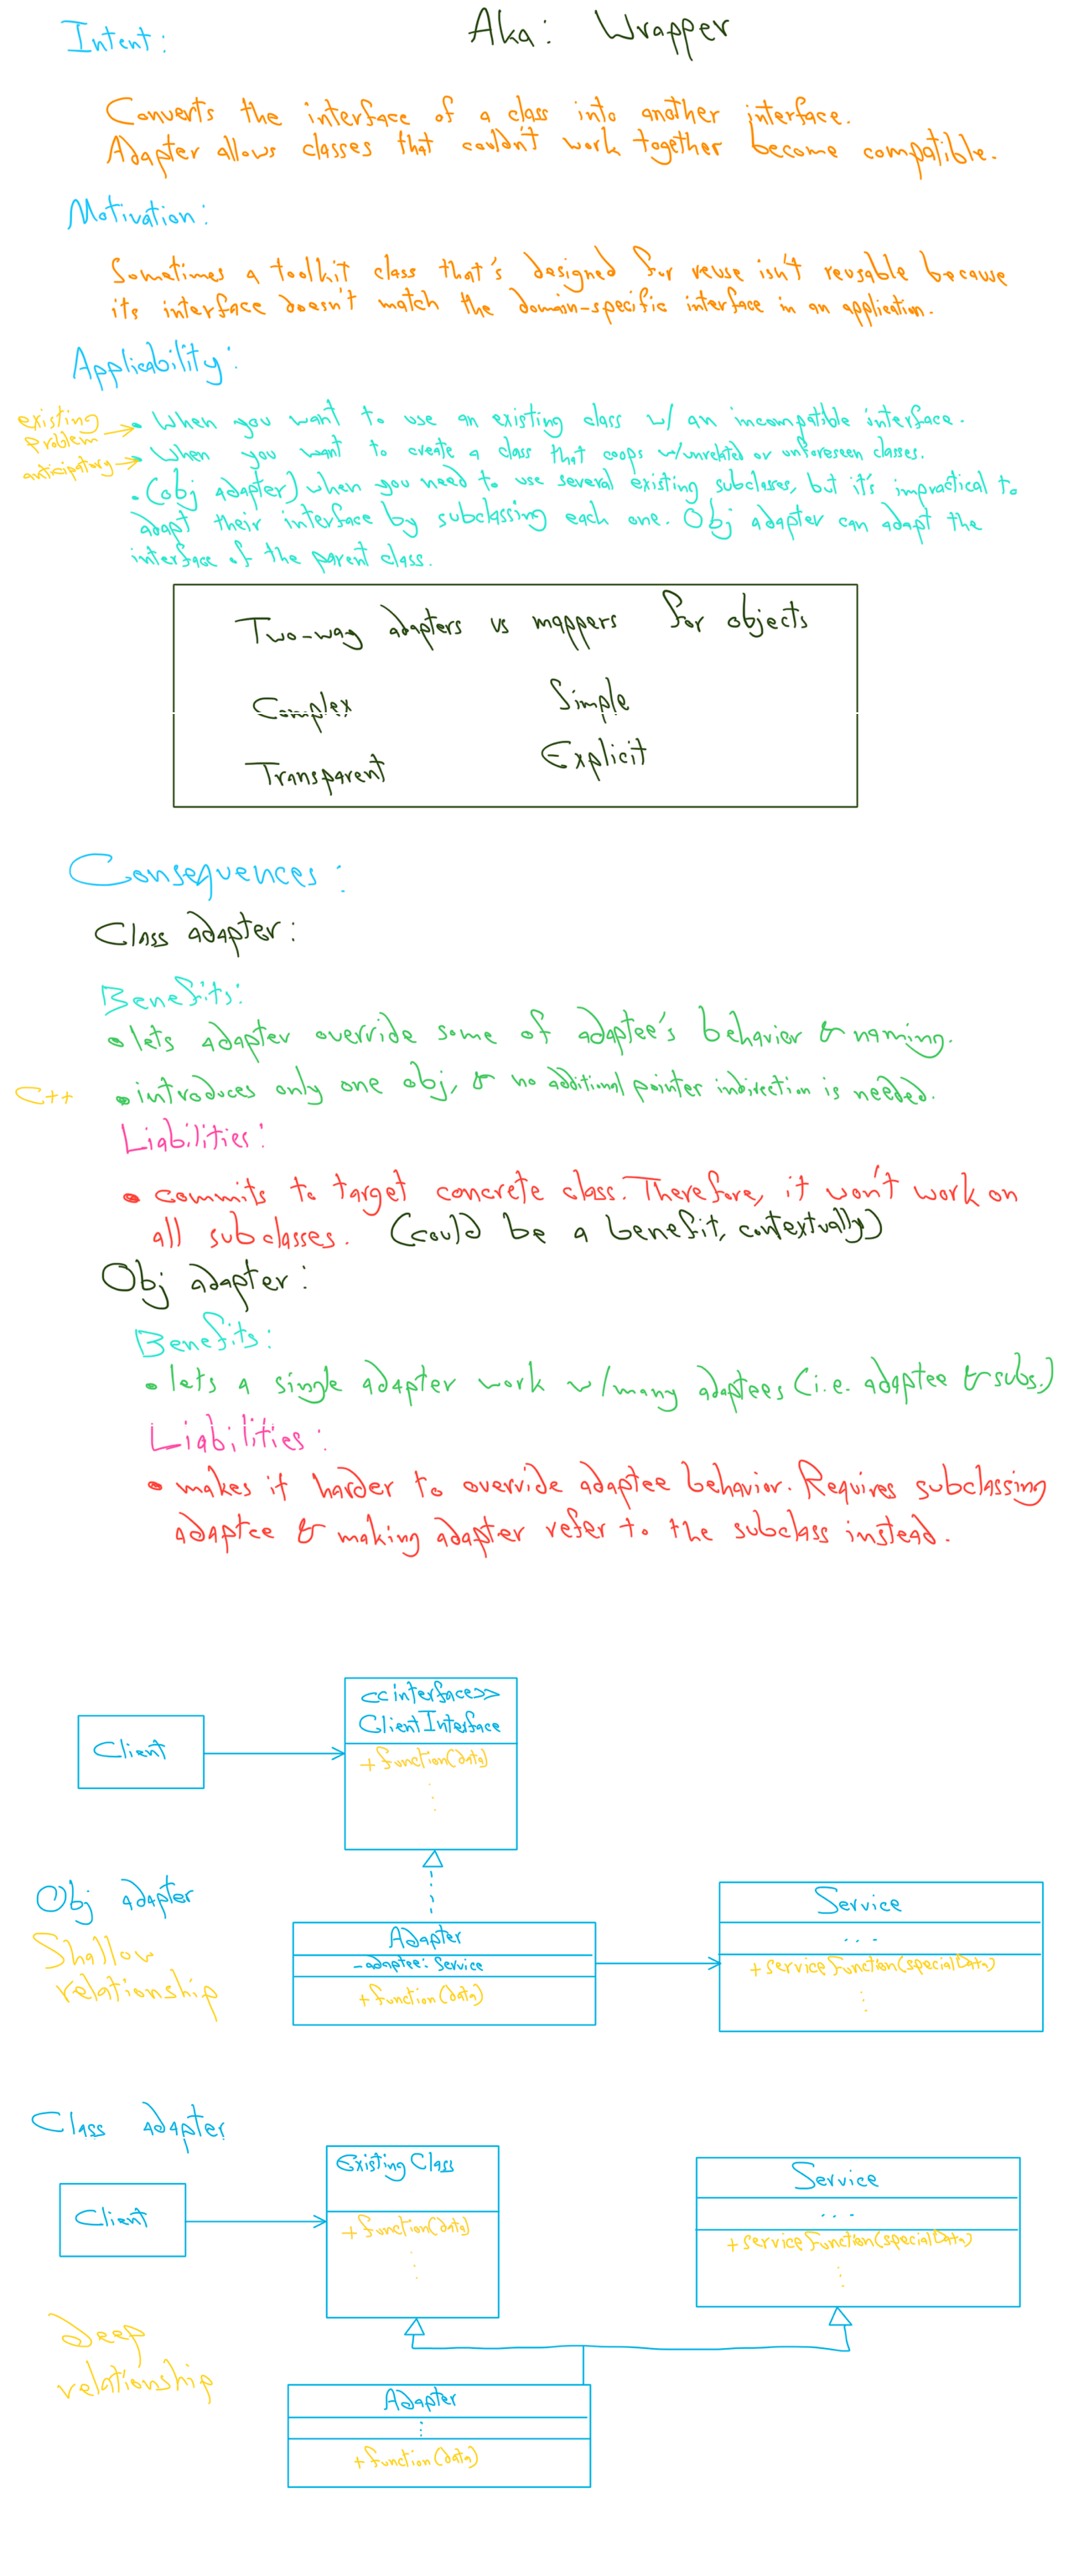 Intent:
Aka: Wrapper
Converts the interface of a class into another interface.
Adapter allows classes that couldn't work together become compatible.
Motivation:
Sometimes a toolkit class that's designed for reuse isn't reusable because
its interface doesn't match the domain-specific interface in an application.
Applicability:
existing
problem
• When you want to use an existing class w/ an incompatible interface.
anticipatory
• When you want to create a class that coops w/unrelated or unforeseen classes.
• (obj adapter) when you need to use several existing subclasses, but it's impractical to
adapt their interface by subclassing each one. Obj adapter can adapt the
interface of the parent class.
Two-way adapters vs mappers for objects
Complex Simple
Transparent Explicit
Consequences:
Class adapter:
Benefits:
• lets adapter override some of adaptee's behavior & naming.
C++ • introduces only one obj, & no additional pointer indirection is needed.
Liabilities:
• commits to target concrete class. Therefore, it won't work on
all subclasses. (could be a benefit, contextually)
Obj adapter:
Benefits:
• lets a single adapter work w/many adaptees (i.e. adaptee & subs.)
Liabilities:
• makes it harder to override adaptee behavior. Requires subclassing
adaptee & making adapter refer to the subclass instead.
<<interface>>
ClientInterface
Client
+ function(data)
Obj adapter
Shallow
relationship
Adapter
- adaptee: Service
+ function(data)
Service
...
+ serviceFunction(specialData)
Class adapter
Client
Existing Class
+ function(data)
Service
...
+ serviceFunction(specialData)
Deep
relationship
Adapter
+ function(data)